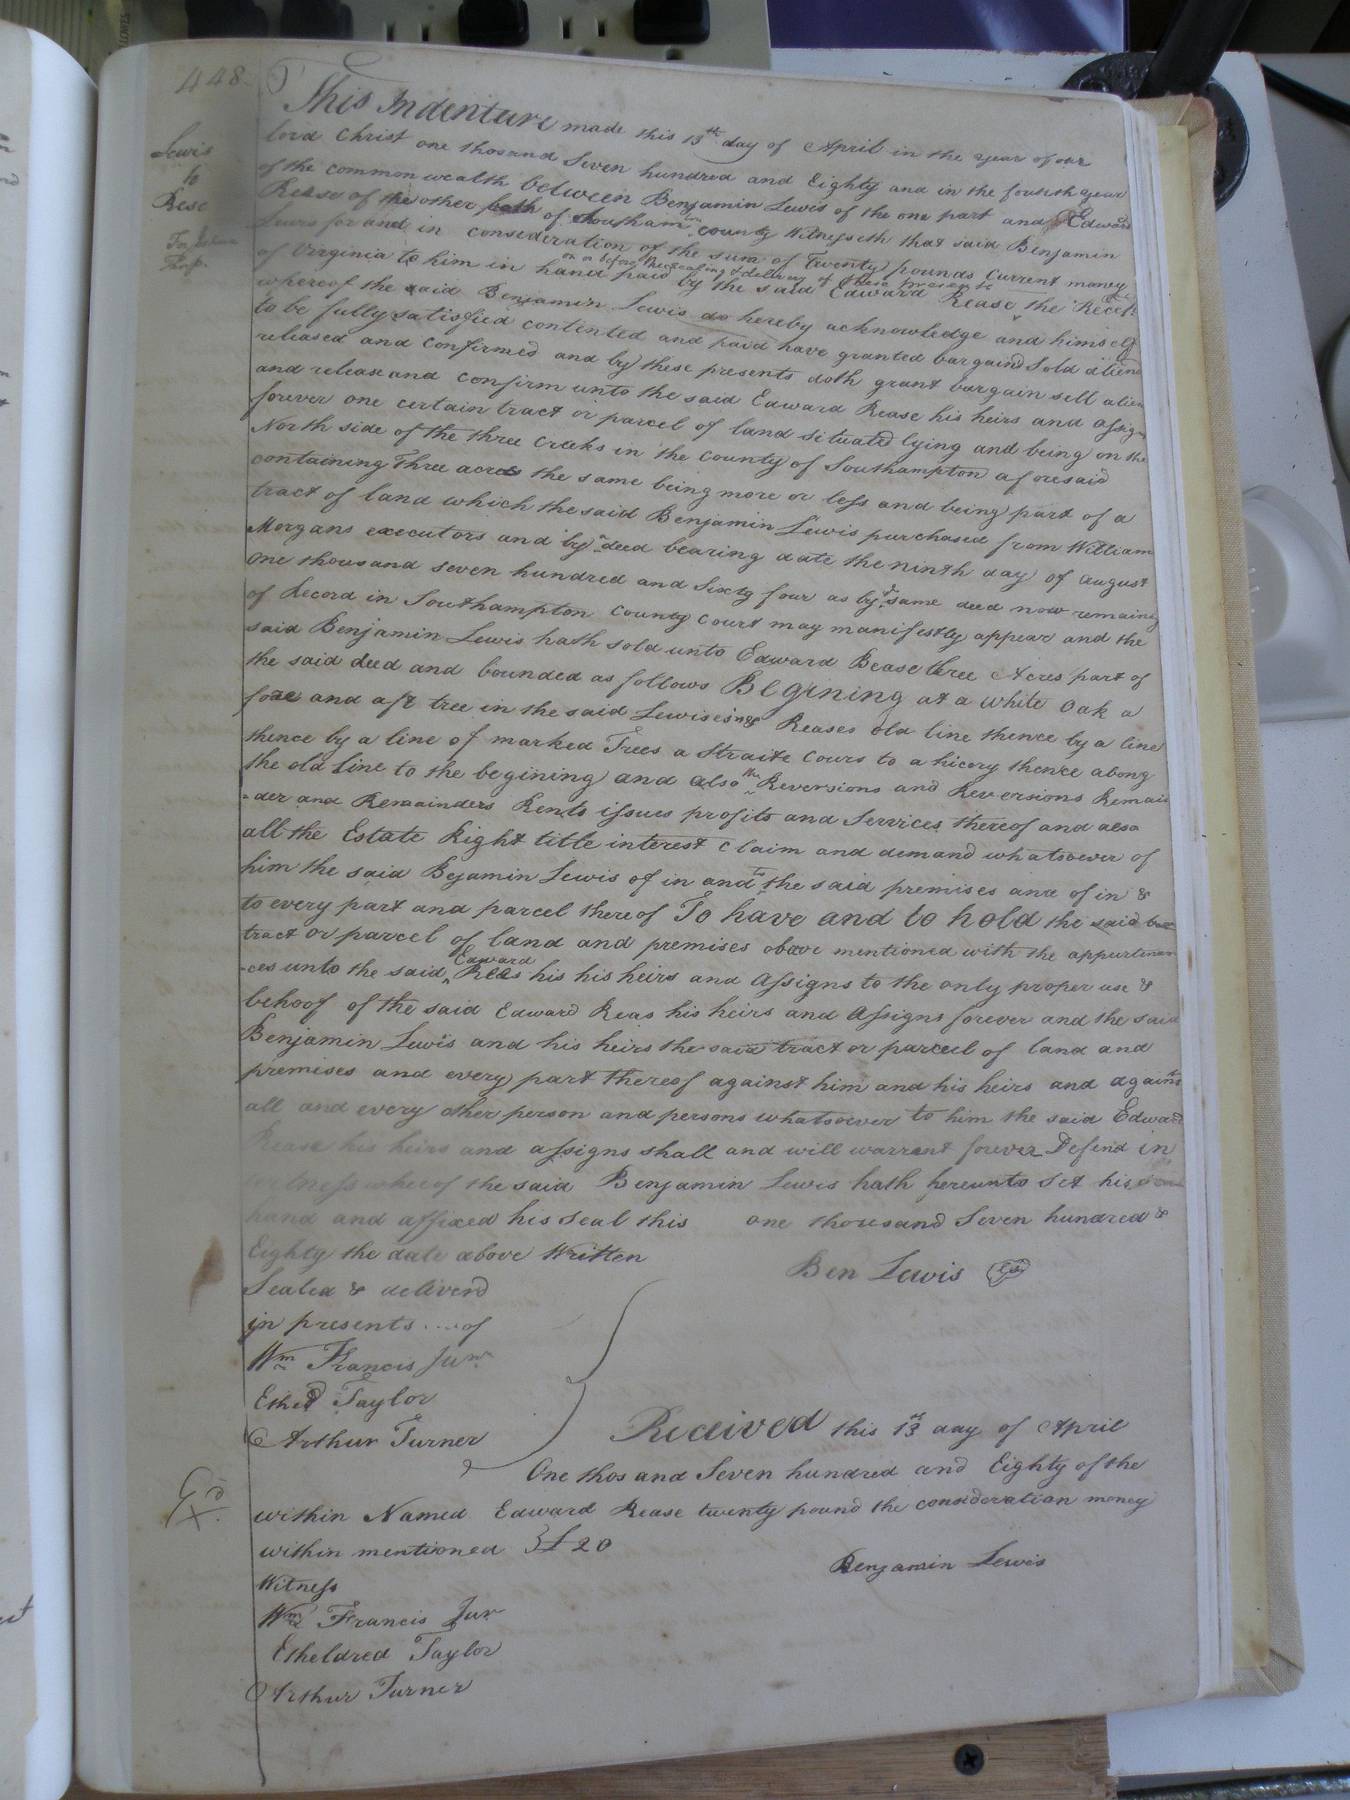 448
Lewis
to
Rese
This Indenture made this 13th day of April in the year of our
lord Christ one thosand Seven hundred and Eighty and in the fourth year
of the common wealth between Benjamin Lewis of the one part and Edward
Rease of the other path of Southamton county Witnesseth that said Benjamin
Lewis for and in consideration of the sum of Twenty pounds Current money
of Virginia to him in hand paid by the said Edward Rease the Recet
on or before the sealing & delivery of these presents
whereof the said Benjamin Lewis do hereby acknowledge and himself
to be fully satisfied contented and paid have granted bargaind Sold aliend
released and confirmed and by these presents doth grant bargain sell alien
and release and confirm unto the said Edward Rease his heirs and assigns
forever one certain tract or parcel of land situated lying and being on the
North side of the three Creeks in the County of Southampton aforesaid
containing Three acres the same being more or less and being part of a
tract of land which the said Benjamin Lewis purchased from William
Morgans executors and by a deed bearing date the ninth day of august
one thousand seven hundred and Sixty four as by ye same deed now remaing
of Record in Southampton County Court may manifestly appear and the
said Benjamin Lewis hath sold unto Edward Rease three Acres part of
the said deed and bounded as follows Begining at a white Oak a
fore and aft tree in the said Lewises & Reases old line thence by a line
thence by a line of marked Trees a Straite Cours to a hicory thence along
the old Line to the begining and also the Reversions and Reversions Remain
-der and Remainders Rents issues profits and Services thereof and also
all the Estate Right title interest claim and demand whatsoever of
him the said Bejamin Lewis of in and to the said premises and of in &
to every part and parcel thereof To have and to hold the said
tract or parcel of land and premises above mentioned with the appurtenan
-ces unto the said Edward Reas his his heirs and Assigns to the only proper use &
behoof of the said Edward Reas his heirs and Assigns forever and the said
Benjamin Lewis and his heirs the said tract or parceil of land and
premises and every part thereof against him and his heirs and against
all and every other person and persons whatsoever to him the said Edward
Rease his heirs and assigns shall and will warrant forever Defend in
witness whereof the said Benjamin Lewis hath hereunto Set his
hand and affixed his Seal this one thousand Seven hundred &
Eighty the date above Written
Ben Lewis LS
Sealed & deliverd
in presents .... of
Wm Francis Junr
Etheld Taylor
Arthur Turner
Received this 13th day of April
One thosand Seven hundred and Eighty of the
within Named Edward Rease twenty pound the consideration money
within mentioned } £20
Benjamin Lewis
Witness
Wm Francis Jur
Etheldred Taylor
Arthur Turner